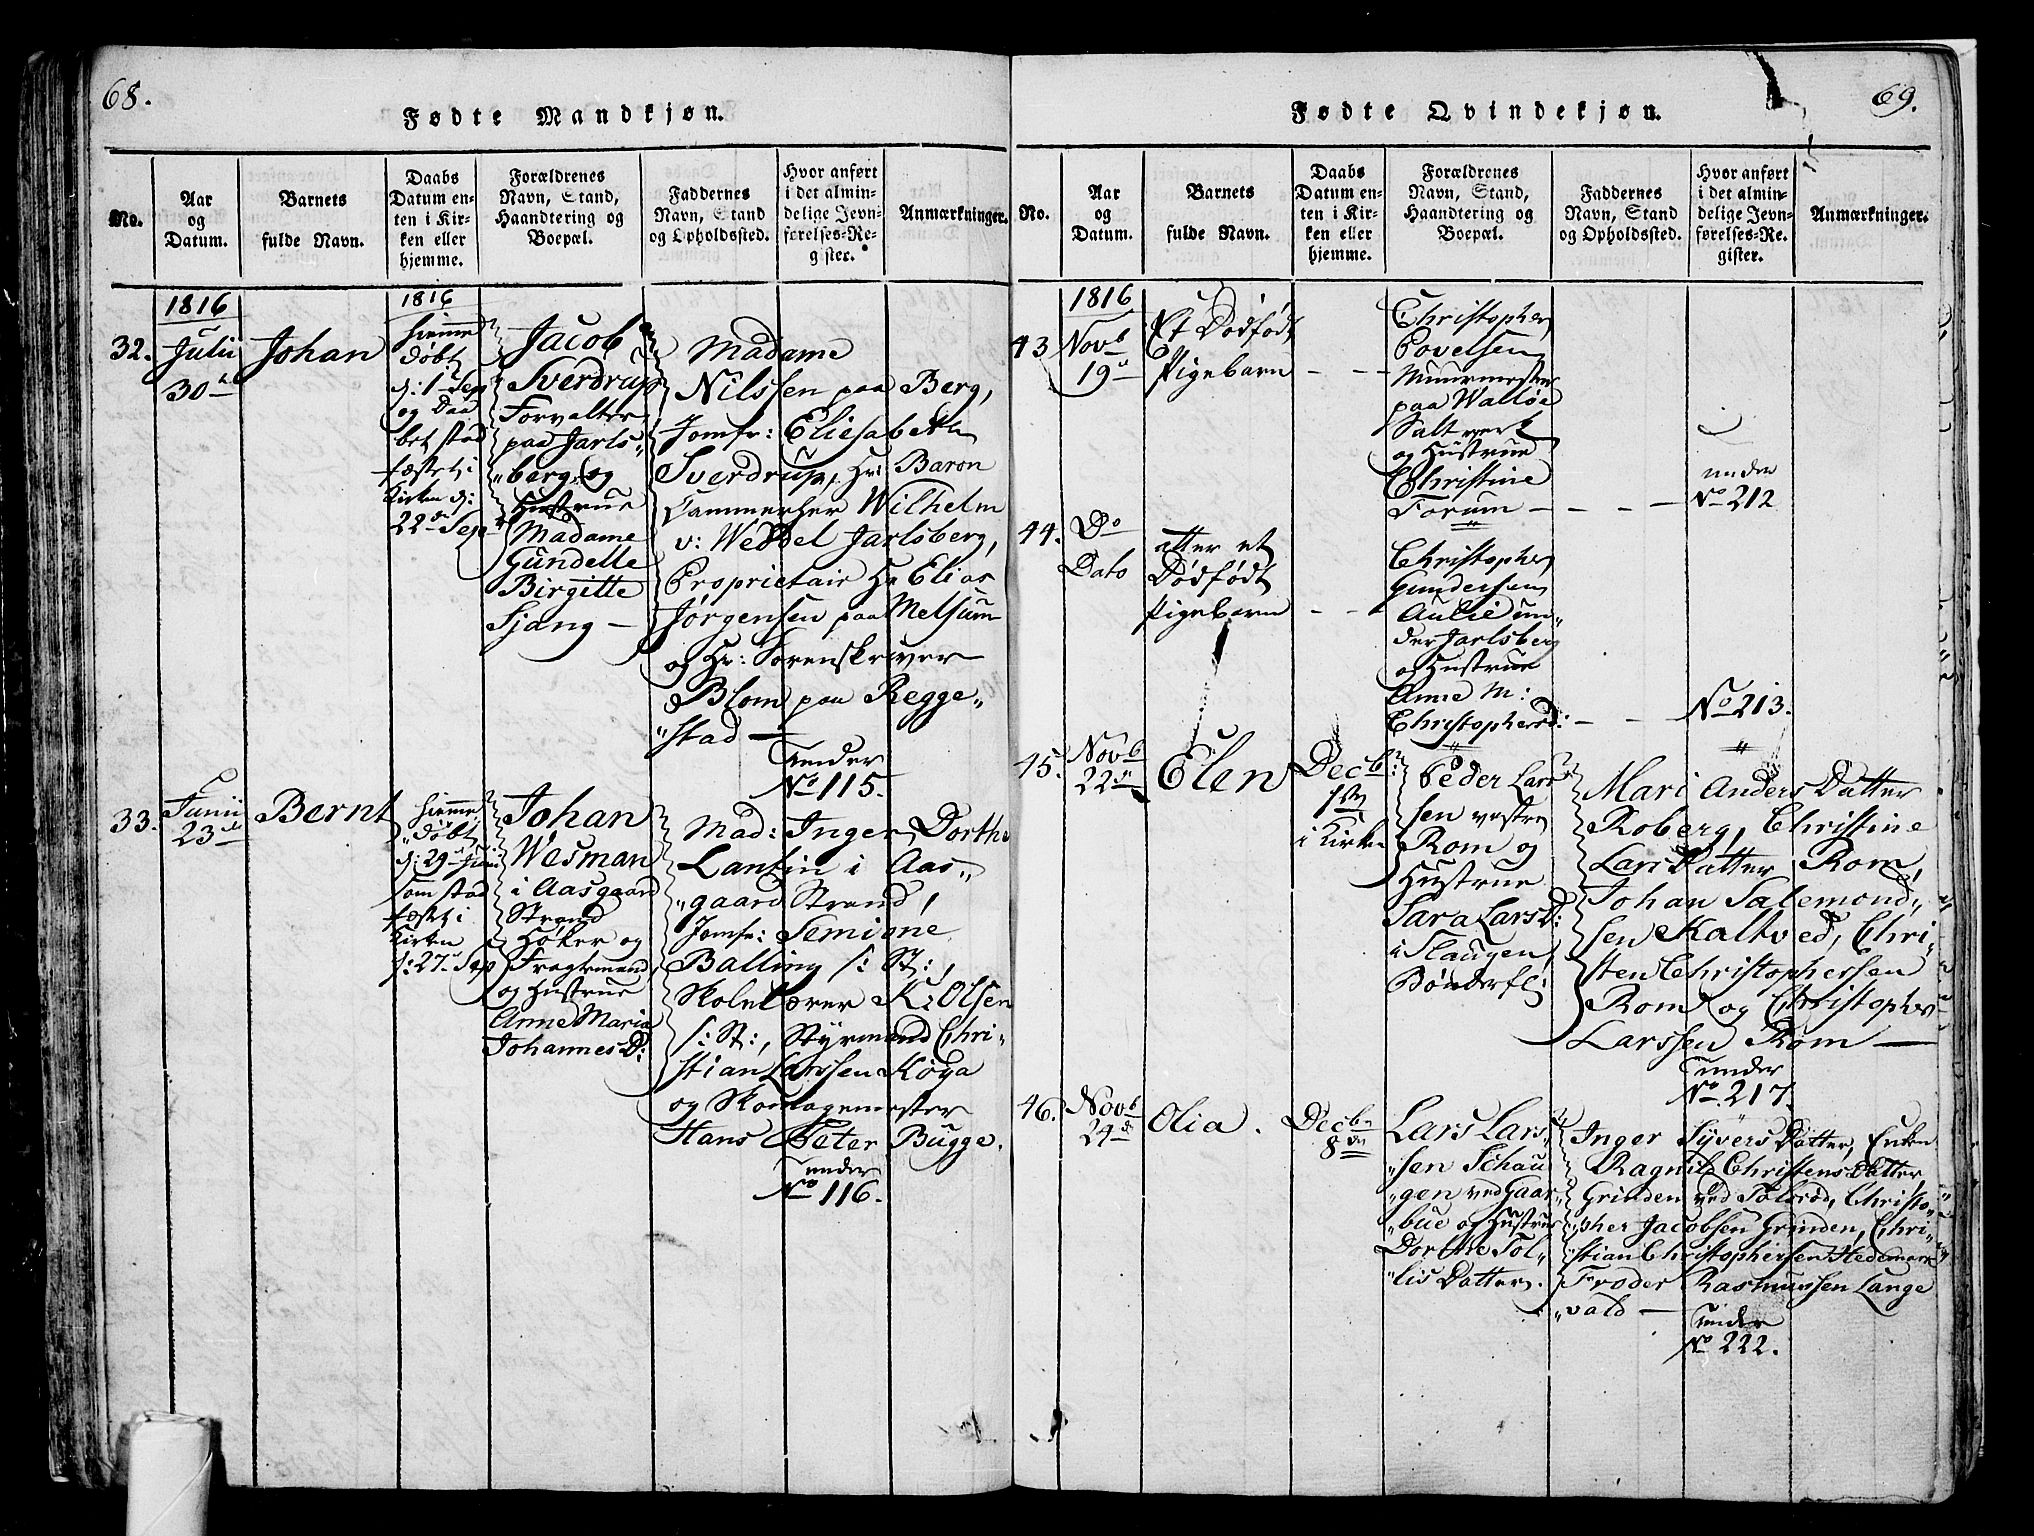 68.
Fødte Mandkjøn.
No.
Aar og Datum.
Barnets fulde Navn.
Daabs Datum enten i Kirken eller hjemme.
Forældrenes Navn, Stand, Haandtering og Boepæl.
Faddernes Navn, Stand og Opholdssted.
Hvor anført i det almindelige Jevnførelses-Register.
Anmærkninger.
1816
32.
Julii
30te
Johan
1816
hiemme
døbt
d: 1 Sep
og Daa
bet stad
fæstet i
Kirken d:
22de Sept
Jacob
Sverdrup
Forvalter
paa Jarls-
berg og
Hustrue
Madame
Gundelle
Birgitte
Siang
Madame
Nilssen paa Berg,
Jomfr: Eliesabeth
Sverdrup, Hr: Baron
Cammerher Wilhelm
v: Weddel Jarlsberg,
Proprietair Hr Elias
Jørgensen paa Melsum
og Hr: Sorenskriver
Blom paa Regge-
stad
under
No 115.
33.
Junii
23de
Bernt
hiemme
døbt
d: 29 Juni
som stad
fæst i
Kirken
d: 27 Sep
Johan
Wesman
i Aasgaard
Strand
Høker og
Fragtmand
og Hustrue
Anne Maria
Johannes D:
Mad: Inger Dorthe
Lantin i Aas-
gaard Strand,
Jomfr: Semione
Balling s: St:,
Skolelærer K: Olsen
s: St:, Styrmand Chri-
stian Larssen Køya
og Skoelagemester
Hans Peter Bugge.
under
No 116.
69.
Fødte Qvindekjøn.
No.
Aar og Datum.
Barnets fulde Navn.
Daabs Datum enten i Kirken eller hjemme.
Forældrenes Navn, Stand, Haandtering og Boepæl.
Faddernes Navn, Stand og Opholdssted.
Hvor anført i det almindelige Jevnførelses-Register.
Anmærkninger.
1816
43
Novb
19de
Et Dødfødt
Pigebarn
Christopher
Povelsen
Muurmester
paa Walløe
Saltverk
og Hustrue
Christine
Forum
under
No 212
44.
Do
Dato
atter et
Dødfødt
Pigebarn
Christopher
Gundersen
Aulie un-
der Jarlsberg
og Hustrue
Anne M:
Christophersd:
No 213.
45.
Novb
22de
Elen
Decb:
1ste
i Kirken
Peder Lars
sen vestre
Rom og
Hustrue
Sara Lars D:
i Slaugen
Bønderf:
Mari Anders Datter
Roberg, Christine
Lars Datter Rom,
Johan Salemond-
sen Kaltved, Chri-
sten Christophersen
Rom og Christopher
Larssen Rom
under
No. 217.
46.
Novb
24de
Olia.
Decbr
8de
Lars Lars-
sen Schau
gen ved Gaar-
bue og Hustrue
Dorthe Tol-
lis Datter.
Inger Syvers Datter, Enken
Ragnild Christens Datter,
Grinden ved Tolsrod, Christo-
pher Jacobsen Grinden, Chri-
stian Christophersen Hedemark
Froder Rasmussen Lange
vald
under
No 222.